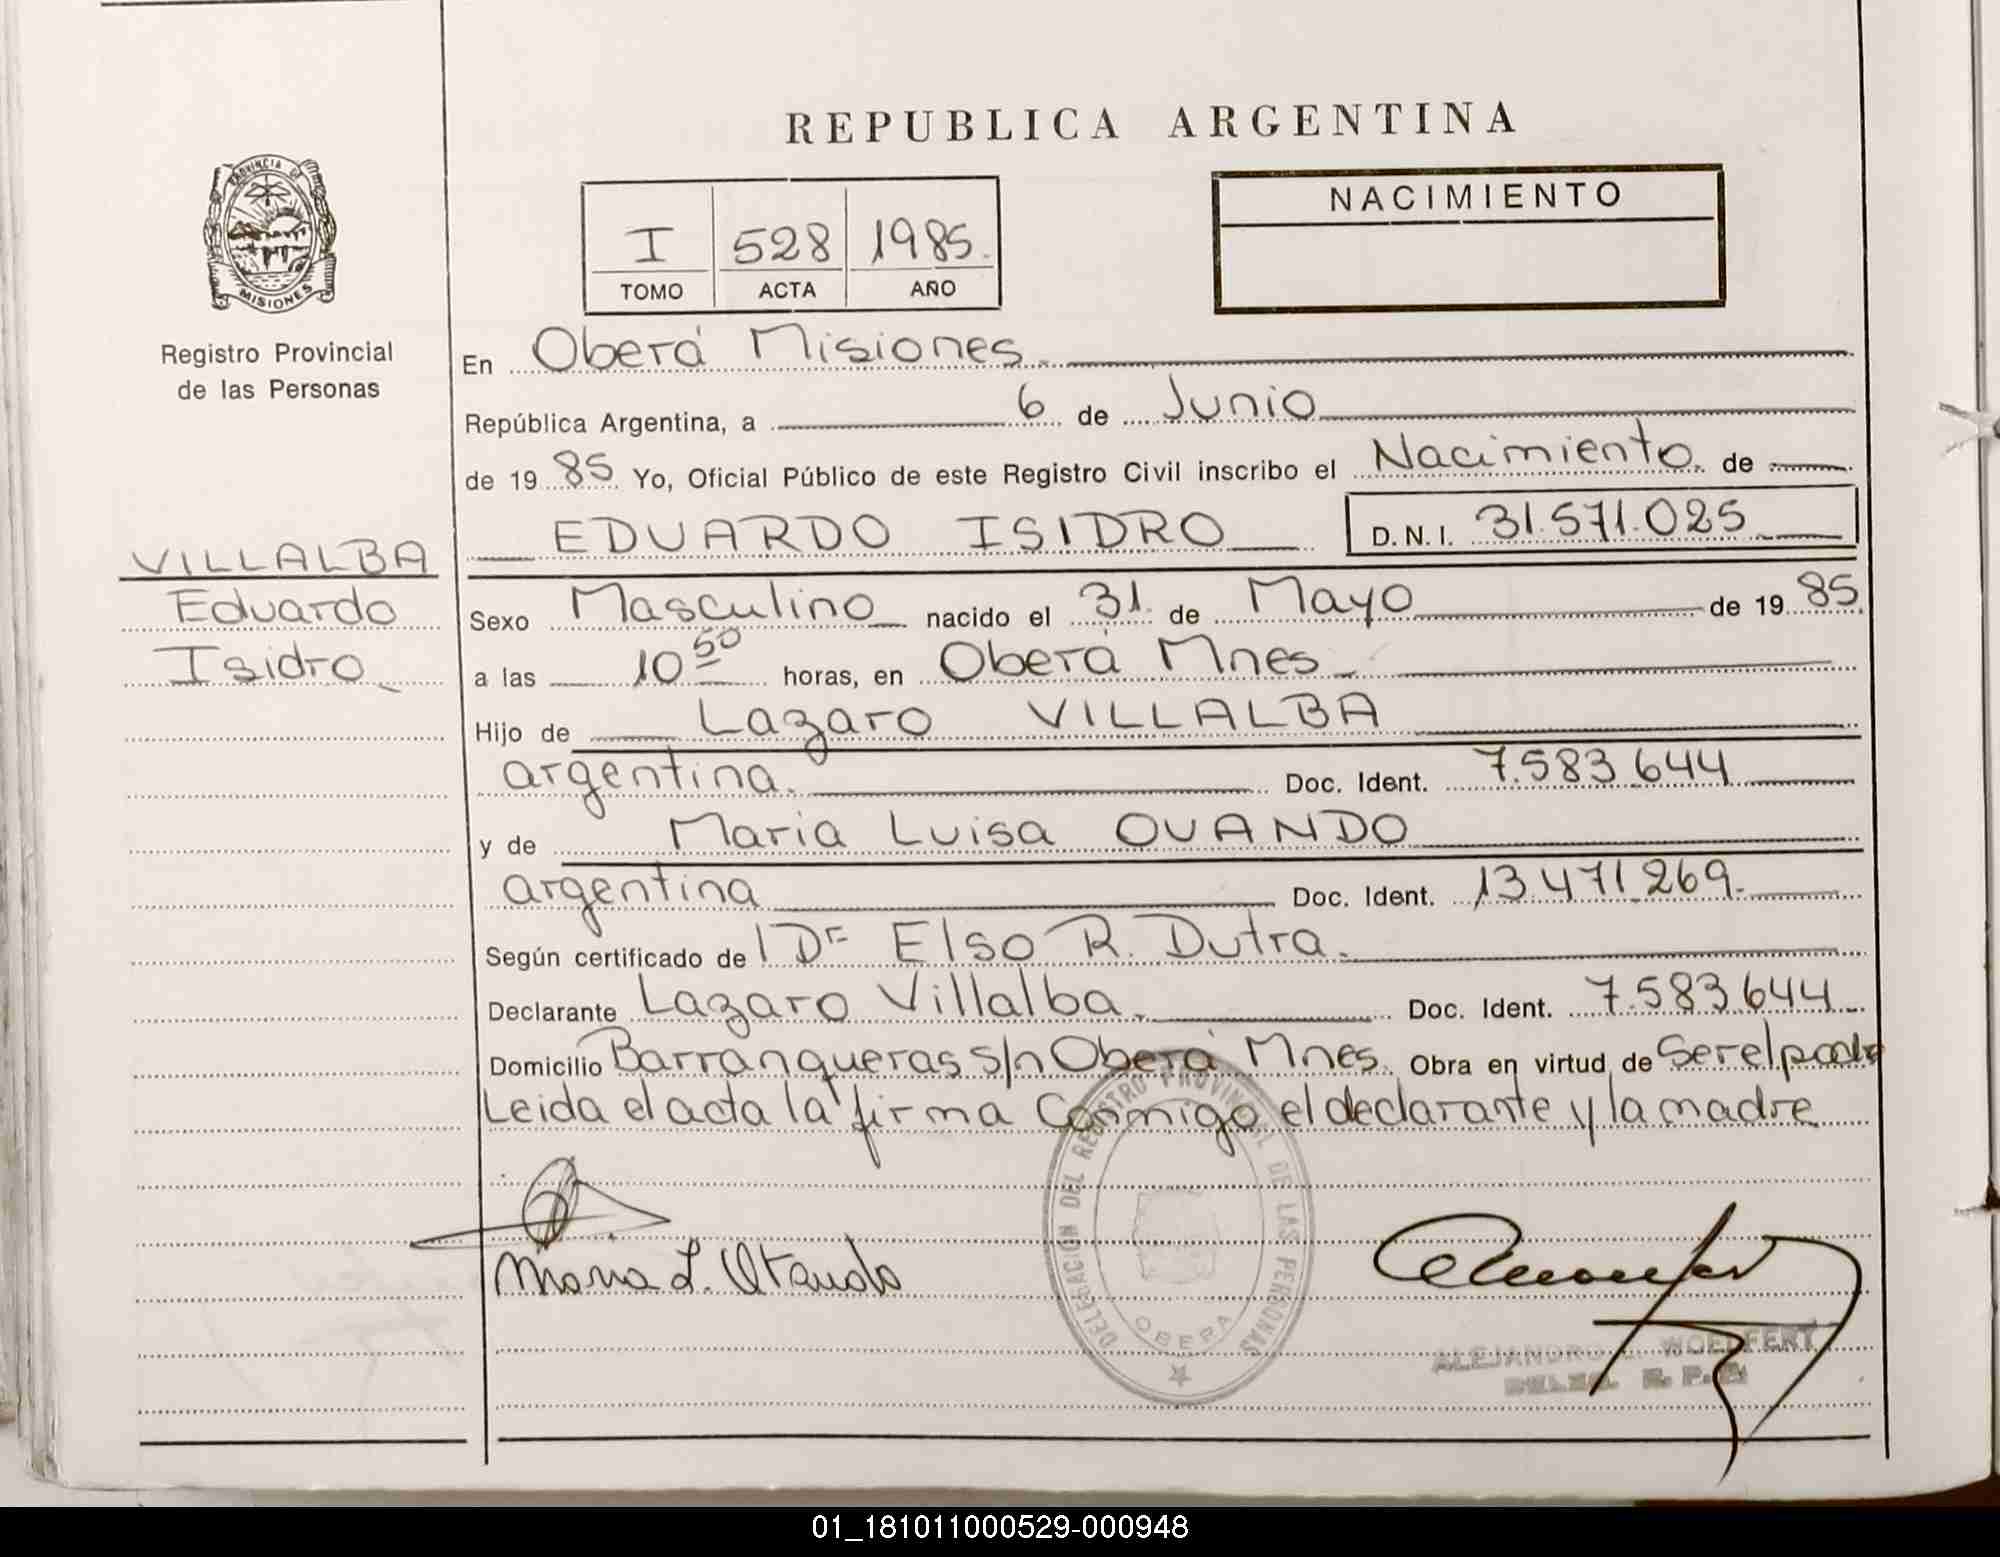 REPUBLICA ARGENTINA
PROVINCIA DE
MISIONES
Registro Provincial
de las Personas
I 528 1985.
TOMO ACTA AÑO
NACIMIENTO
En Oberá Misiones.
República Argentina, a 6 de Junio
de 19 85 Yo, Oficial Público de este Registro Civil inscribo el Nacimiento. de
EDUARDO ISIDRO D.N.I. 31.571.025
VILLALBA
Eduardo
Isidro
Sexo Masculino nacido el 31. de Mayo de 19 85
a las 10 50 horas, en Oberá Mnes
Hijo de Lazaro VILLALBA
argentina. Doc. Ident. 7.583.644
y de Maria Luisa OVANDO
argentina Doc. Ident. 13.471.269.
Según certificado de Dr Elso R. Dutra.
Declarante Lazaro Villalba. Doc. Ident. 7.583.644
Domicilio Barranqueras s/n Oberá Mnes. Obra en virtud de Ser el padre
Leida el acta la firma Conmigo el declarante y la madre
Maria L.
DELEGACION DEL REGISTRO PROVINCIAL DE LAS PERSONAS
OBERA
ALEJANDRO WOELFERT
01_181011000529-000948